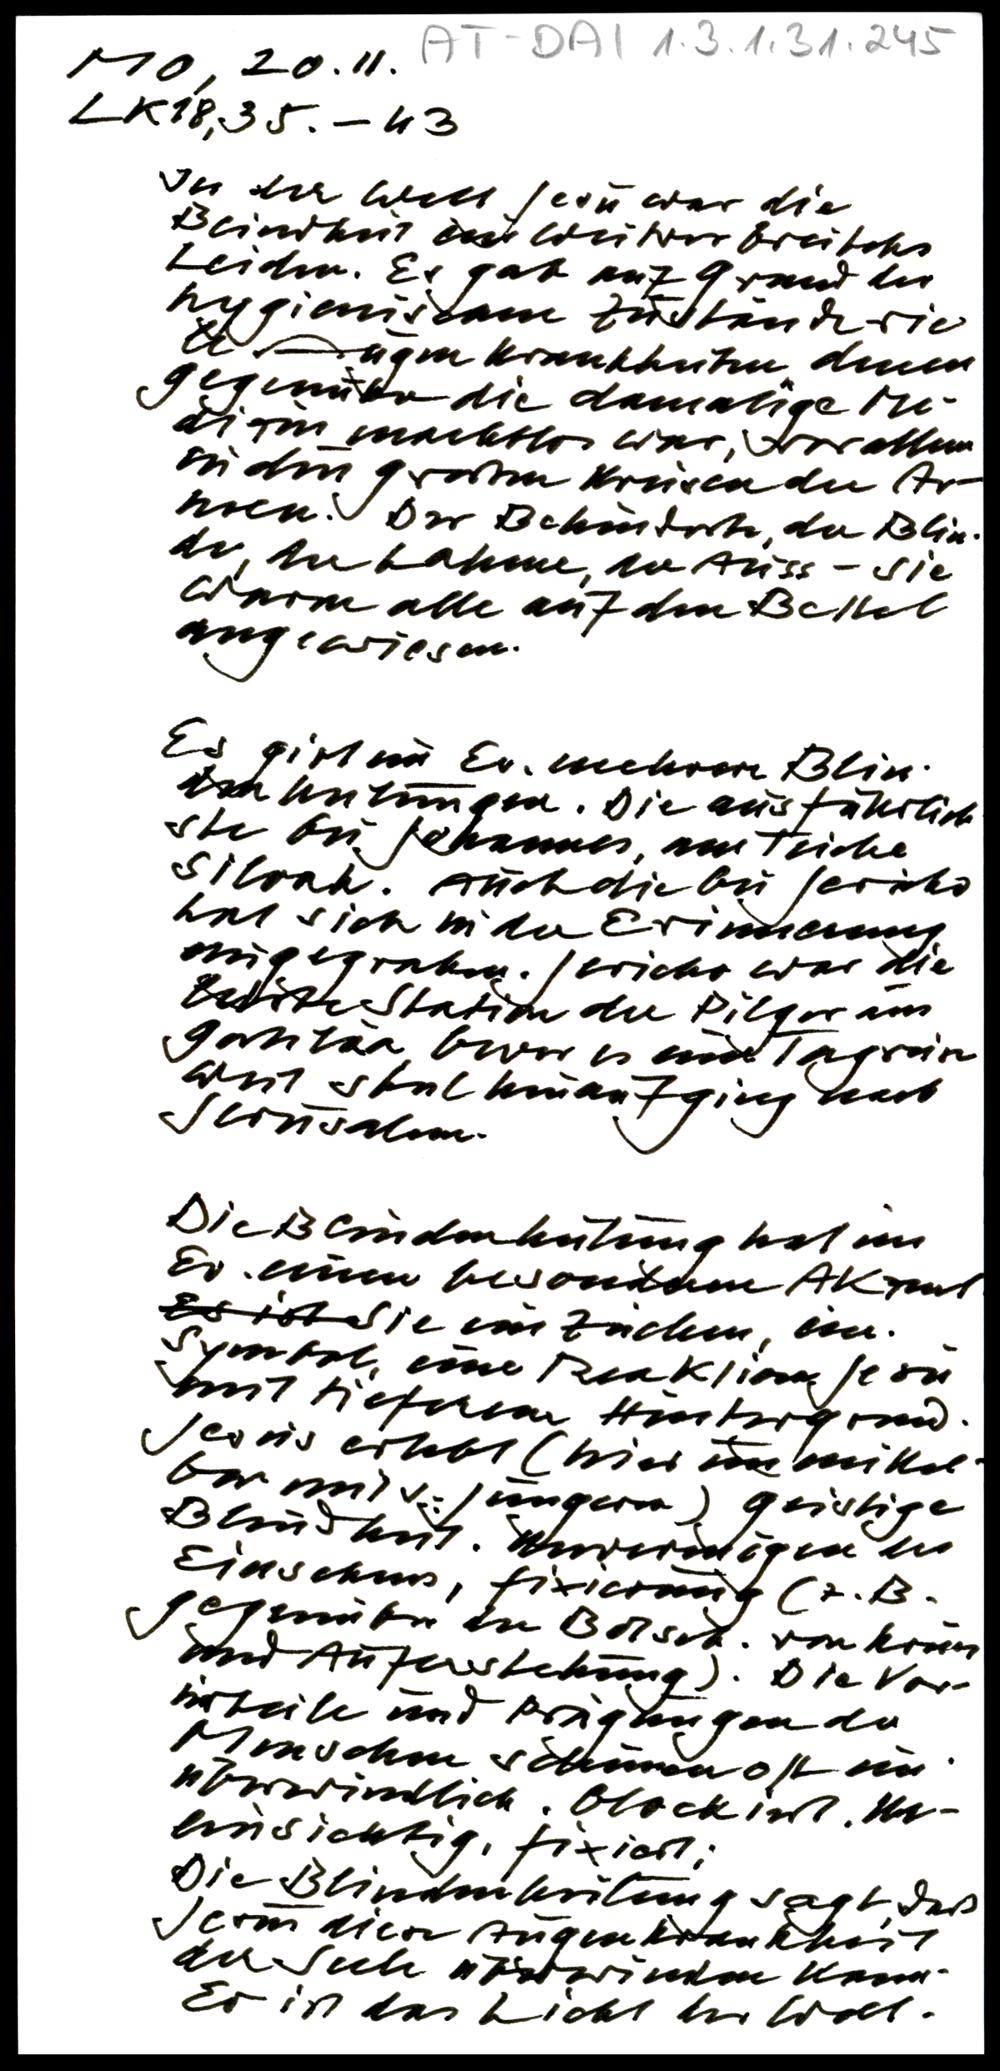 AT-DAI 1.3.1.31.245
MO, 20.11.
LK18,35.-43
In der Welt Jesu war die
Blindheit ein weitverbreitetes
Leiden. Es gab auf Grund der
hygienischen Zustände vie
le Augenkrankheiten denen
gegenüber die damalige Me-
dizin machtlos war, vor allem
in den großen Kreisen der Ar-
men. Der Behinderte, der Blin-
de, der Lahme, der Auss - sie
waren alle auf den Bettel
angewiesen.
Es gibt im Ev. mehrere Blin-
denheilungen. Die ausführlich
ste bei Johannes, am Teiche
Siloah. Auch die bei Jericho
hat sich in der Erinnerung
eingegraben. Jericho war die
letzte Station der Pilger aus
Galiläa, bevor es eine Tagreise
weit steil hinaufging nach
Jerusalem.
Die Blindenheilung hat im
Ev. einen besonderen Akzent
Es ist Sie ein Zeichen, ein
Symbol, eine Reaktion Jesu
mit tieferem Hintergrund.
Jesus erlebt (hier unmittel-
bar mit s. Jüngern) geistige
Blindheit. Unvermögen des
Einsehens, Fixierung (z.B.
gegenüber der Botsch. von Kreuz
und Auferstehung). Die Vor-
urteile und Prägungen der
Menschen scheinen oft un
überwindlich. Blockiert. Un-
einsichtig, fixiert;
Die Blindenheilung sagt, daß
Jesus diese Augenkrankheit
der Seele überwinden kann.
Er ist das Licht der Welt.